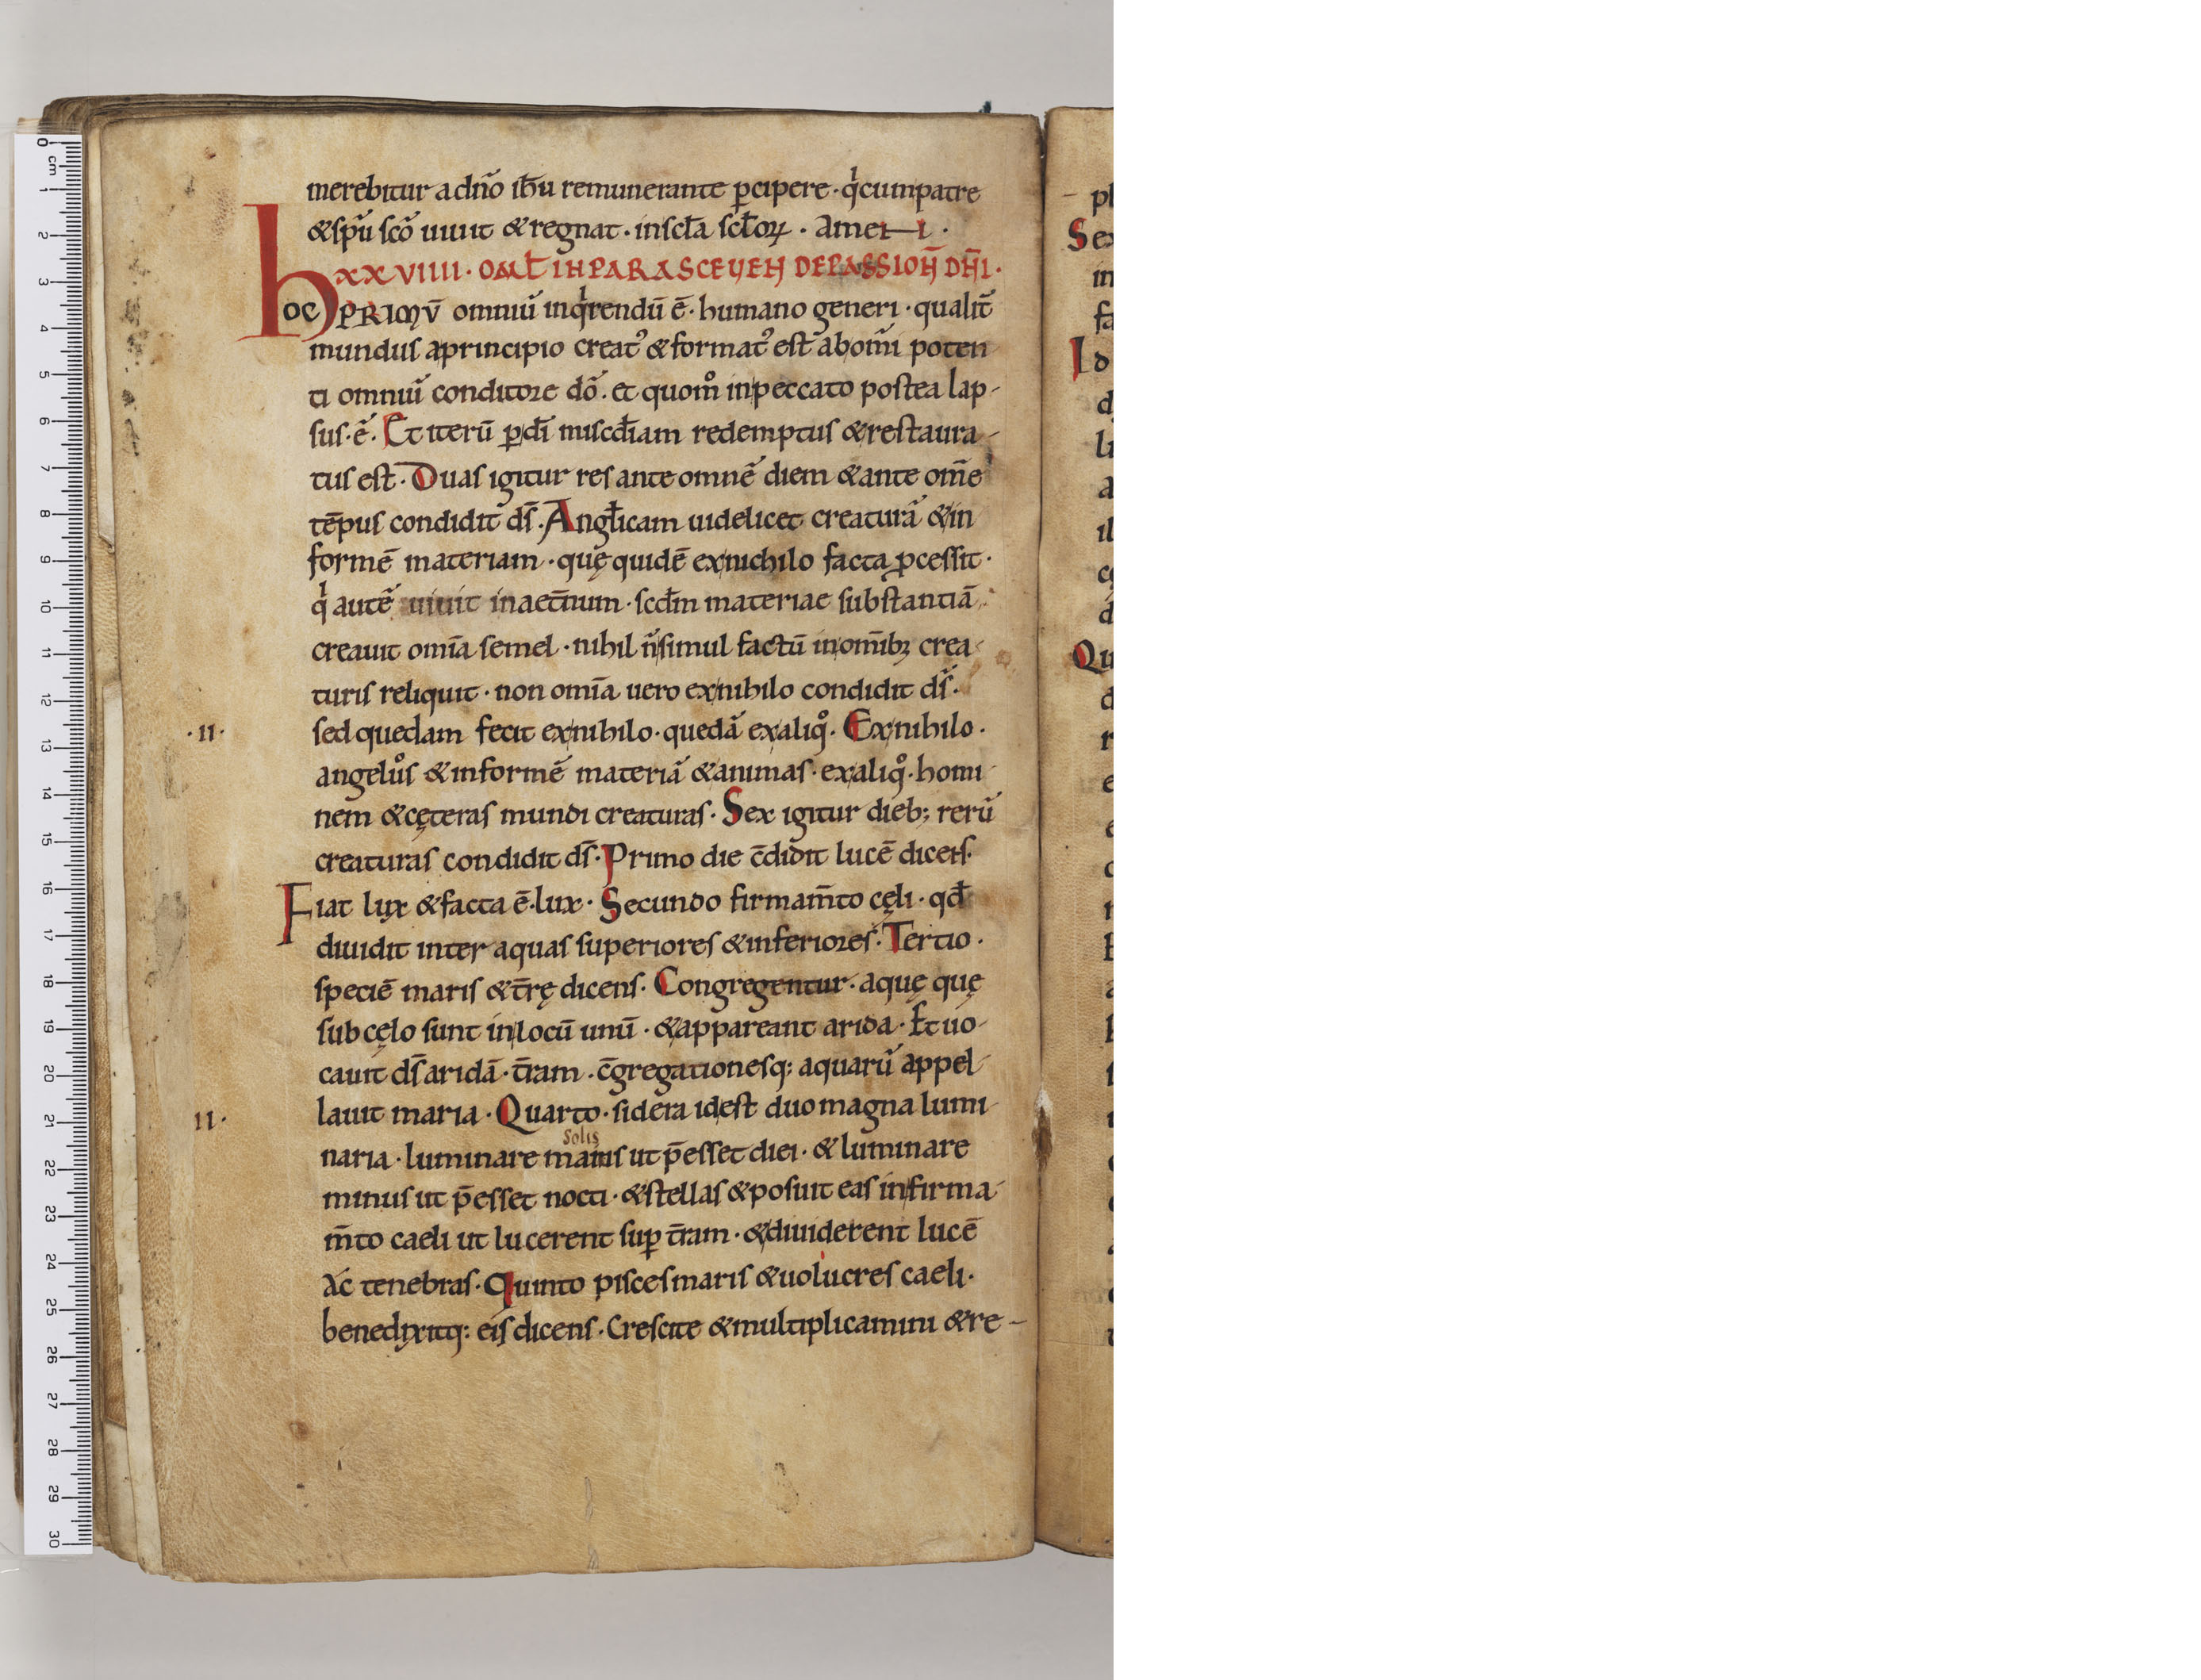 merebitur a dn̄o ih̄u remunerante ꝑcipere · qͥ cum patre
& sp̄u sc̄o uiuit & regnat · in scl̄a scl̄oꝝ · amen ·
XXVIIII · OML̄ IN PARASCEUEN DE PASSION̄ DN̄I ·
hoc PRIMV̄ omniū inqͥrendū ē · humano generi · qualit̄
mundus a principio creatꝰ & formatꝰ est ab om̄i poten
ti omniū conditore dō · et quomͦ in peccato postea lap-
sus · ē · Et iterū ꝑ dī mis̄cd̄iam redemptus & restaura-
tus est · Duas igitur res ante omnē diem & ante om̄e
tēpus condidit ds̄ · Angl̄icam uidelicet creaturā & in
formē materiam · quę quidē ex nichilo facta ꝓcessit ·
qͥ autē uiuit in aet̄num · scd̄m materiae substantiā
creauit om̄ia semel · nihil n̄ simul factū in om̄ibꝫ crea-
turis reliquit · non om̄ia uero ex nihilo condidit ds̄ ·
· II · sed quedam fecit ex nihilo · quedā ex aliqͦ · Ex nihilo ·
angelͦus & informē materiā & animas · ex aliqͦ · homi-
nem & cęteras mundi creaturas · Sex igitur dieb; rerū
creaturas condidit ds̄ · Primo die c̄didit lucē dicens ·
Fiat lux & facta ē · lux · Secundo firmam̄to cęli · qd̄
diuidit inter aquas superiores & inferiores · Tertio ·
speciē maris & t̄rę dicens · Congregentur · aquę quę
sub cęlo sunt in locū unū · & appareant arida · Et uo-
cauit ds̄ aridā · t̄ram · c̄gregationesq; aquarū appel-
II · lauit maria · Quarto · sidera id est duo magna lumi-
solis
naria · luminare maius ut p̄esset diei · & luminare
minus ut p̄esset nocti · & stellas & posuit eas in firma-
m̄to caeli ut lucerent suꝑ t̄ram · & diuiderent lucē
ac tenebras · Quinto pisces maris & uolucres caeli ·
benedixitq; eis dicens · Crescite & multiplicamini & re-